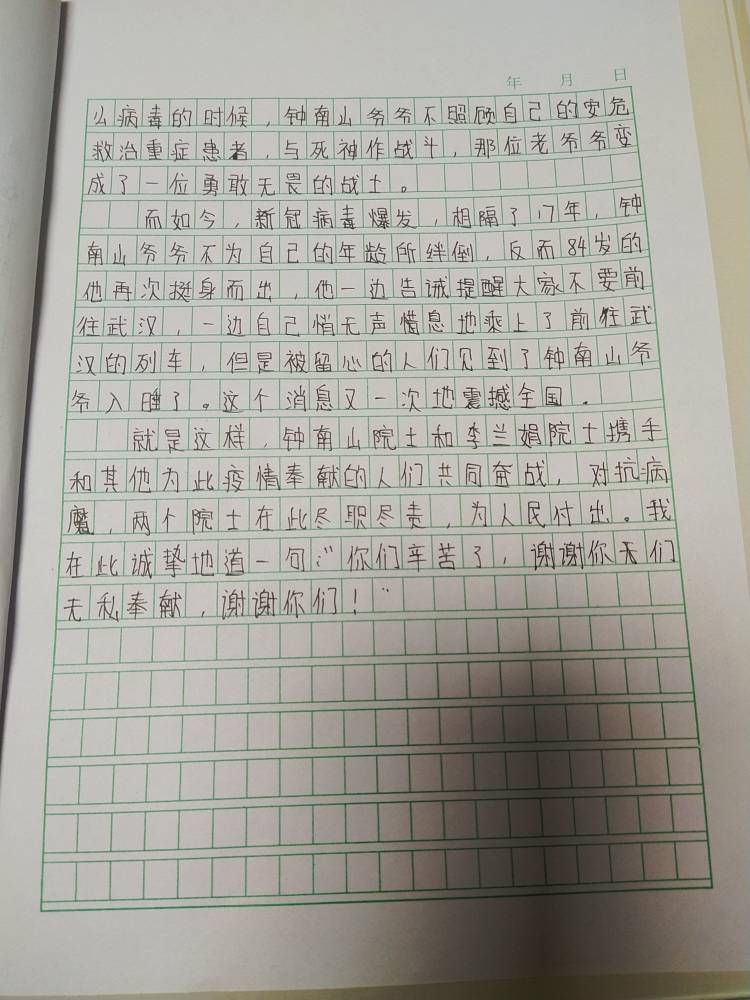 年 月 日
么病毒的时候，钟南山爷爷不照顾自己的安危
救治重症患者，与死神作战斗，那位老爷爷变
成了一位勇敢无畏的战士。
而如今，新冠病毒爆发，相隔了17年，钟
南山爷爷不为自己的年龄所绊倒，反而84岁的
他再次挺身而出，他一边告诫提醒大家不要前
往武汉，一边自己悄无声息地乘上了前往武
汉的列车，但是被留心的人们见到了钟南山爷
爷入睡了。这个消息又一次地震撼全国。
就是这样，钟南山院士和李兰娟院士携手
和其他为此疫情奉献的人们共同奋战，对抗病
魔，两个院士在此尽职尽责，为人民付出。我
在此诚挚地道一句：“你们辛苦了，谢谢你无们
无私奉献，谢谢你们！”